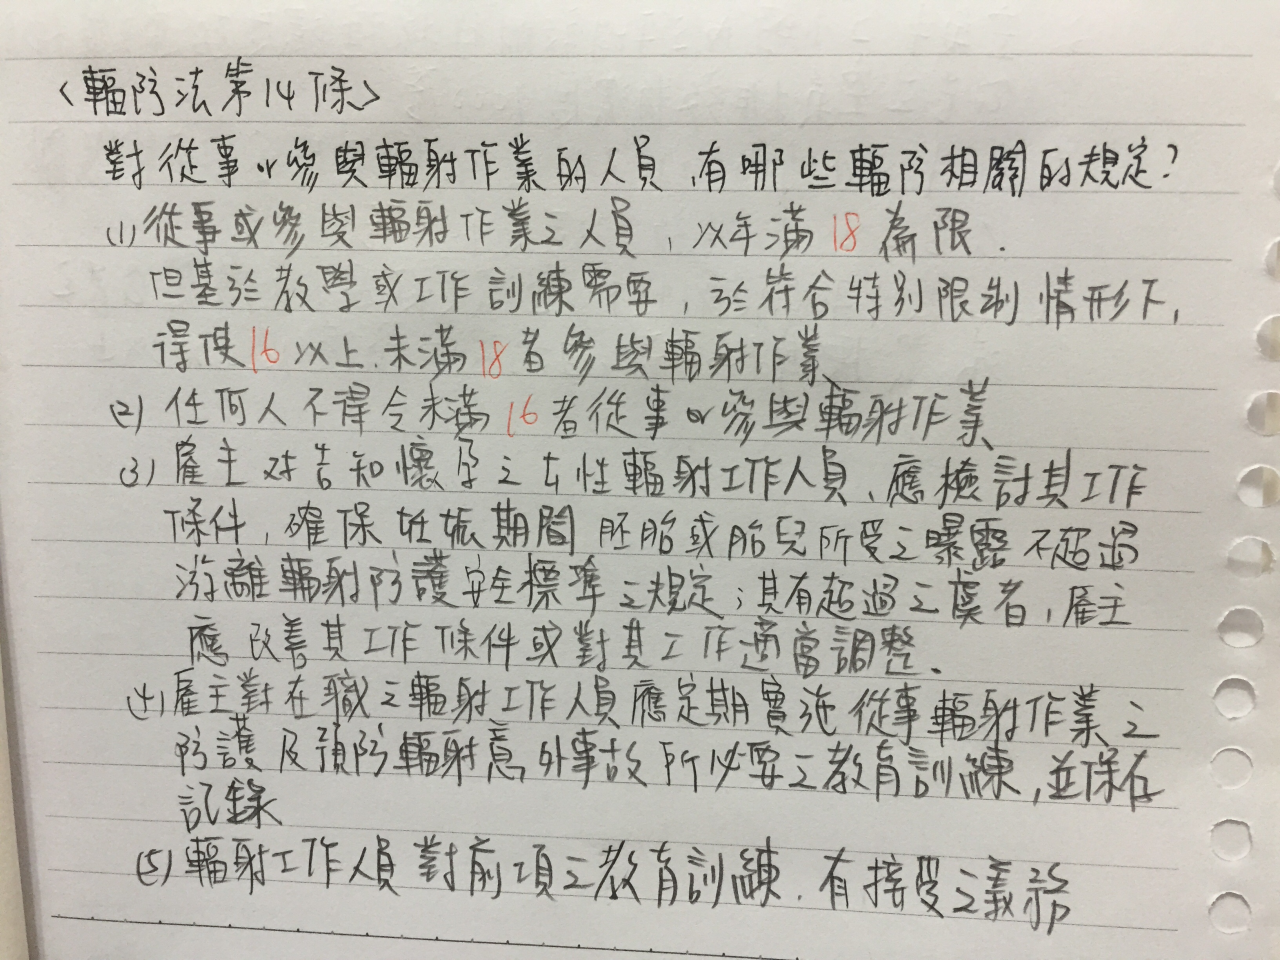 <輻防法第14條>
對從事or參與輻射作業的人員,有哪些輻防相關的規定?
(1)從事或參與輻射作業之人員,以年滿18為限.
但基於教學或工作訓練需要,於符合特別限制情形下,
得使16以上.未滿18者參與輻射作業、
(2)任何人不得令未滿16者從事or參與輻射作業
(3)雇主对告知懷孕之女性輻射工作人員、應檢討其工作
條件,確保妊娠期間胚胎或胎兒所受之曝露不超過
游離輻射防護安全標準之規定;其有超過之虞者,雇主
應改善其工作條件或對其工作適當調整、
(4)雇主對在職之輻射工作人員應定期實施從事輻射作業之
防護及預防輻射意外事故所必要之教育訓練,並保存
記錄
(5)輻射工作人員對前項之教育訓練.有接受之義務